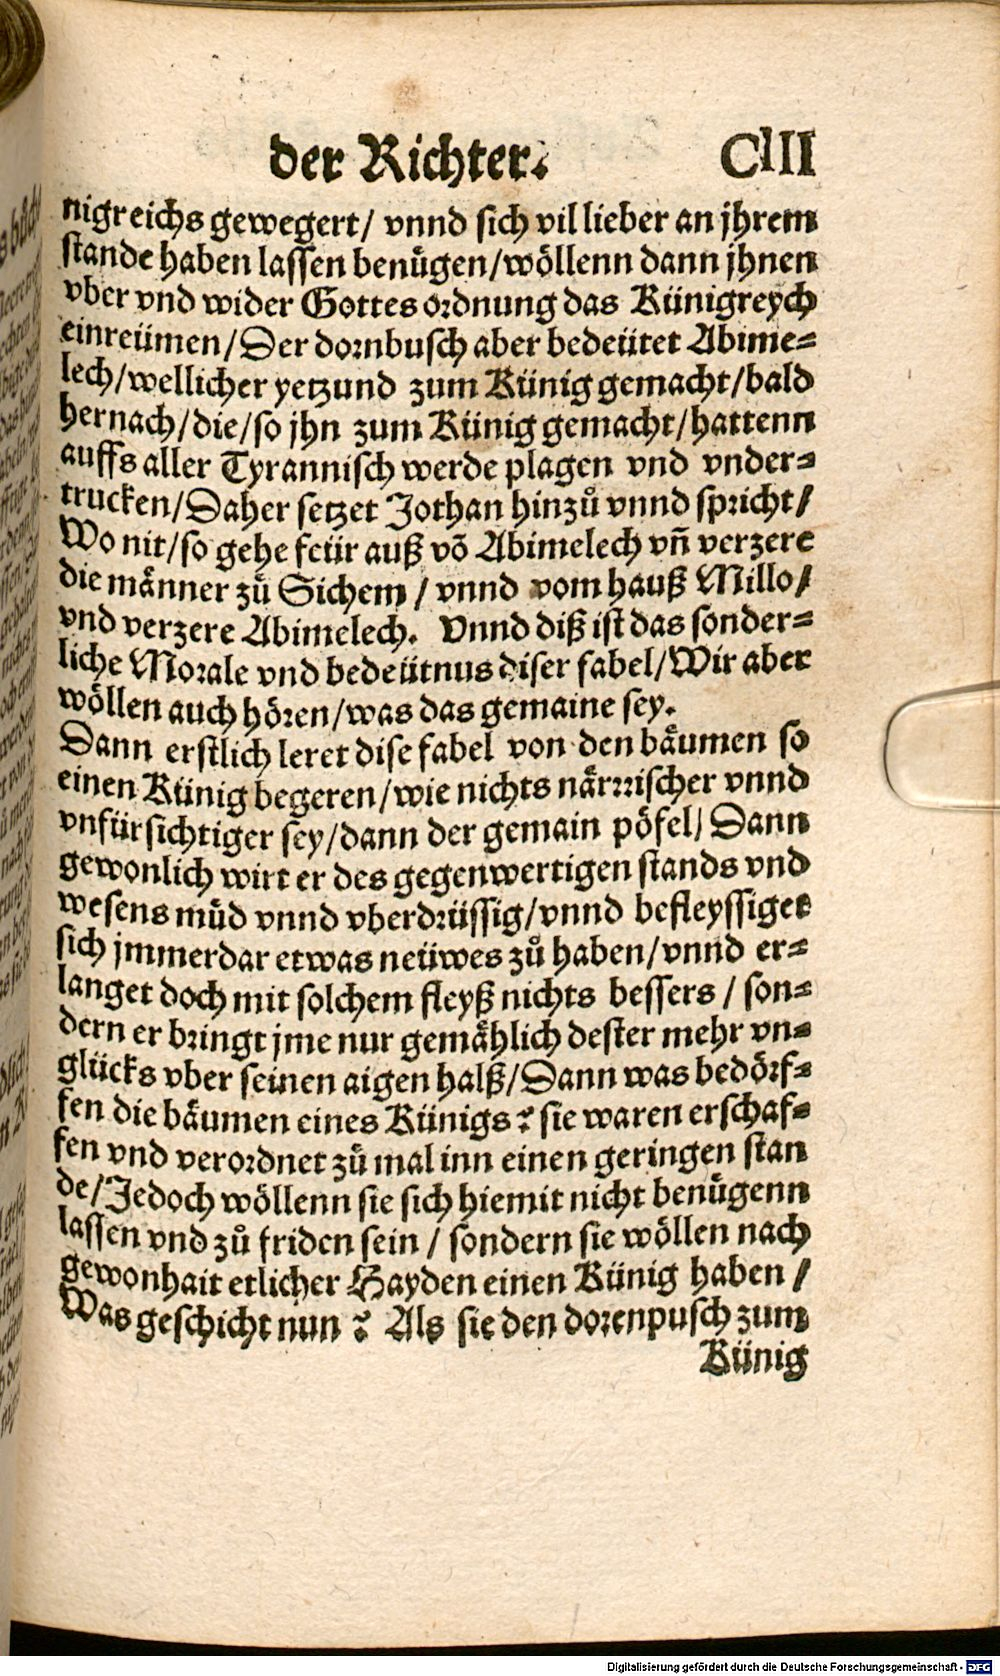 der Richter. CIII
nigreichs gewegert/ vnnd sich vil lieber an jhrem
stande haben lassen benügen/wöllenn dann jhnen
vber vnd wider Gottes ordnung das Künigreych
einreümen/Der dornbusch aber bedeütet Abime⸗
lech/wellicher yetzund zum Künig gemacht/bald
hernach/die/so jhn zum Künig gemacht/hattenn
auffs aller Tyrannisch werde plagen vnd vnder⸗
trucken/Daher setzet Jothan hinzů vnnd spricht/
Wo nit/so gehe feür auß võ Abimelech vñ verzere
die männer zů Sichem / vnnd vom hauß Millo/
vnd verzere Abimelech. Vnnd diß ist das sonder⸗
liche Morale vnd bedeütnus diser fabel/Wir aber
wöllen auch hören/was das gemaine sey.
Dann erstlich leret dise fabel von den bäumen so
einen Künig begeren/wie nichts närrrischer vnnd
vnfürsichtiger sey/dann der gemain pöfel/ Dann
gewonlich wirt er des gegenwertigen stands vnd
wesens müd vnnd vberdrüssig/vnnd befleyssiget
sich jmmerdar etwas neüwes zů haben/vnnd er⸗
langet doch mit solchem fleyß nichts bessers / son⸗
dern er bringt jme nur gemählich dester mehr vn⸗
glücks vber seinen aigen halß/Dann was bedörf⸗
fen die bäumen eines Künigs? sie waren erschaf⸗
fen vnd verordnet zů mal inn einen geringen stan
de/Jedoch wöllenn sie sich hiemit nicht benügenn
lassen vnd zů friden sein / sondern sie wöllen nach
gewonhait etlicher Hayden einen Künig haben /
Was geschicht nun ? Als sie den dorenpusch zum
Künig
Digitalisierung gefördert durch die Deutsche Forschungsgemeinschaft - DFG